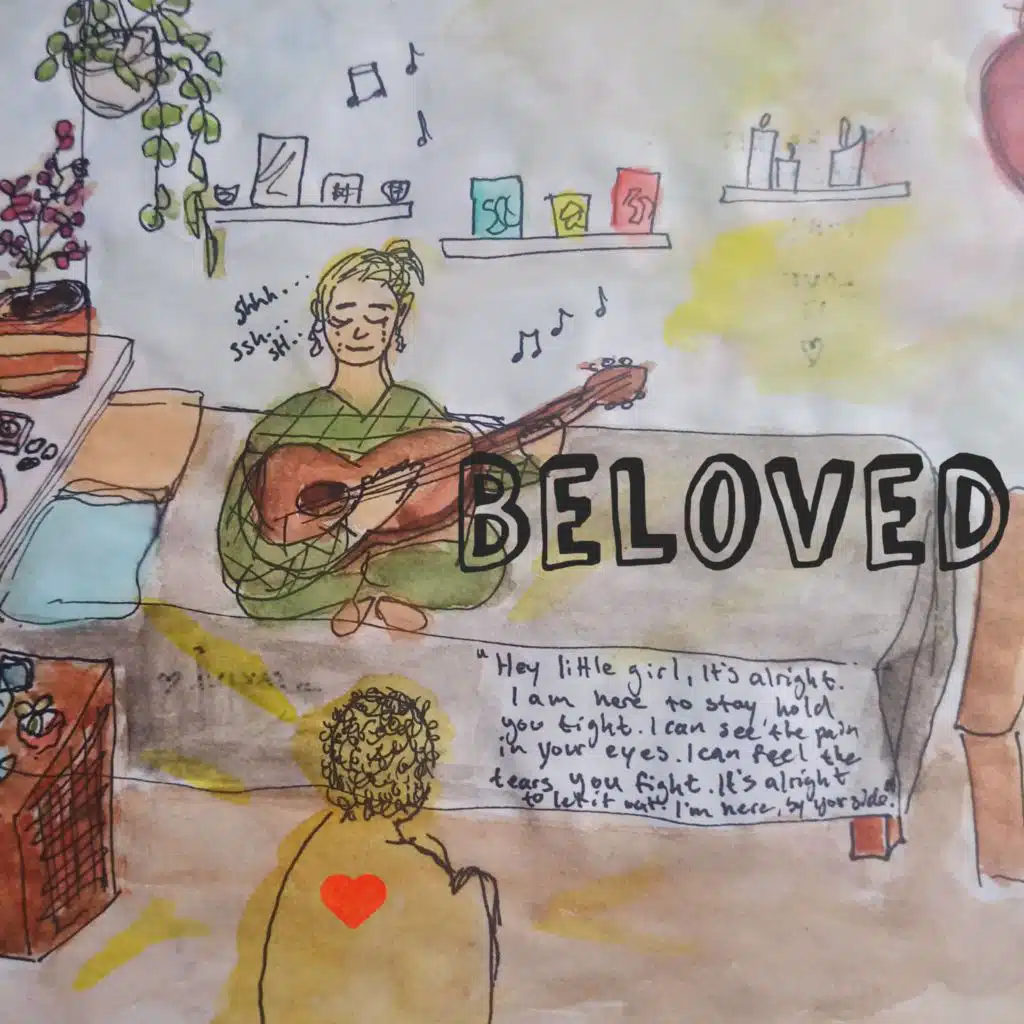 shhh...
ssh...
sh...
BELOVED
"Hey little girl, It's alright.
I am here to stay, hold
you tight. I can see, the pain
in your eyes. I can feel the
tears, you fight. It's alright
to let it out. I'm here, by your side."